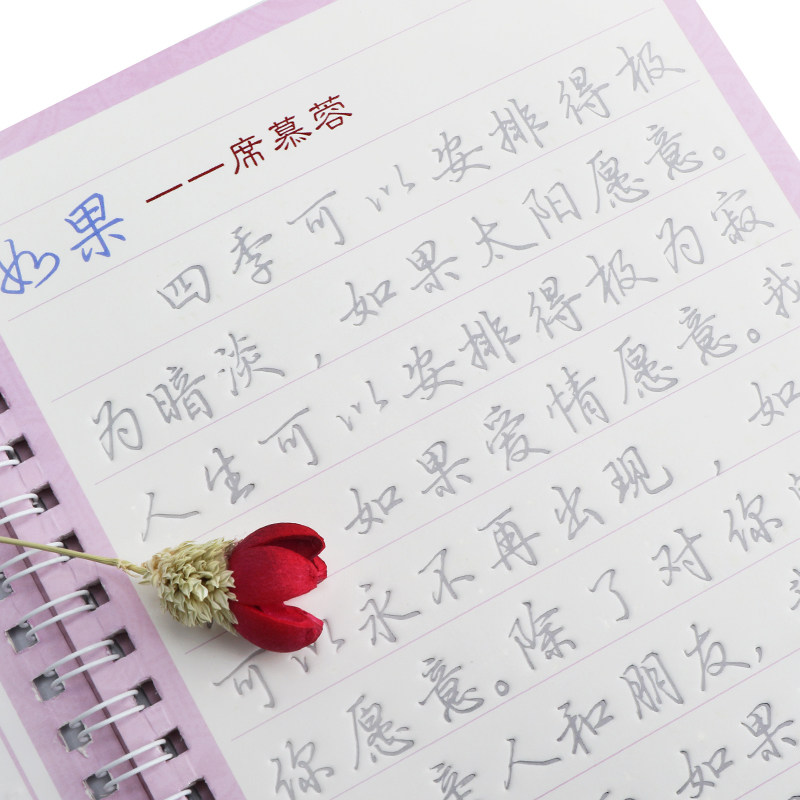 如果 ——席慕蓉
四季可以安排得极
为暗淡，如果太阳愿意。
人生可以安排得极为寂
如果爱情愿意。我
可以永不再出现，如
你愿意。除了对你
人和朋友，
如果